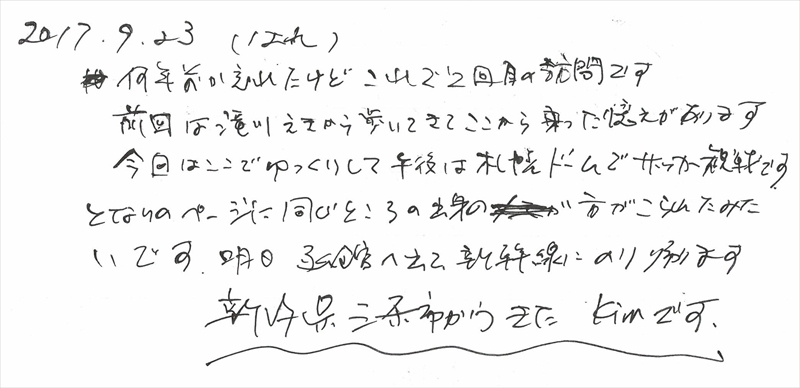 2017.9.23 (はれ)
何年前か忘れたけど これで2回目の訪問です
前回は滝川えきから歩いてきてここから乗った憶えがあります
今回はここでゆっくりして午後は札幌ドームでサッカー観戦です
となりのページに同じところの出身の が 方がこられたみた
いです. 明日 函館へ出て 新幹線にのり帰ります
新潟県三条市からきた Kimです.